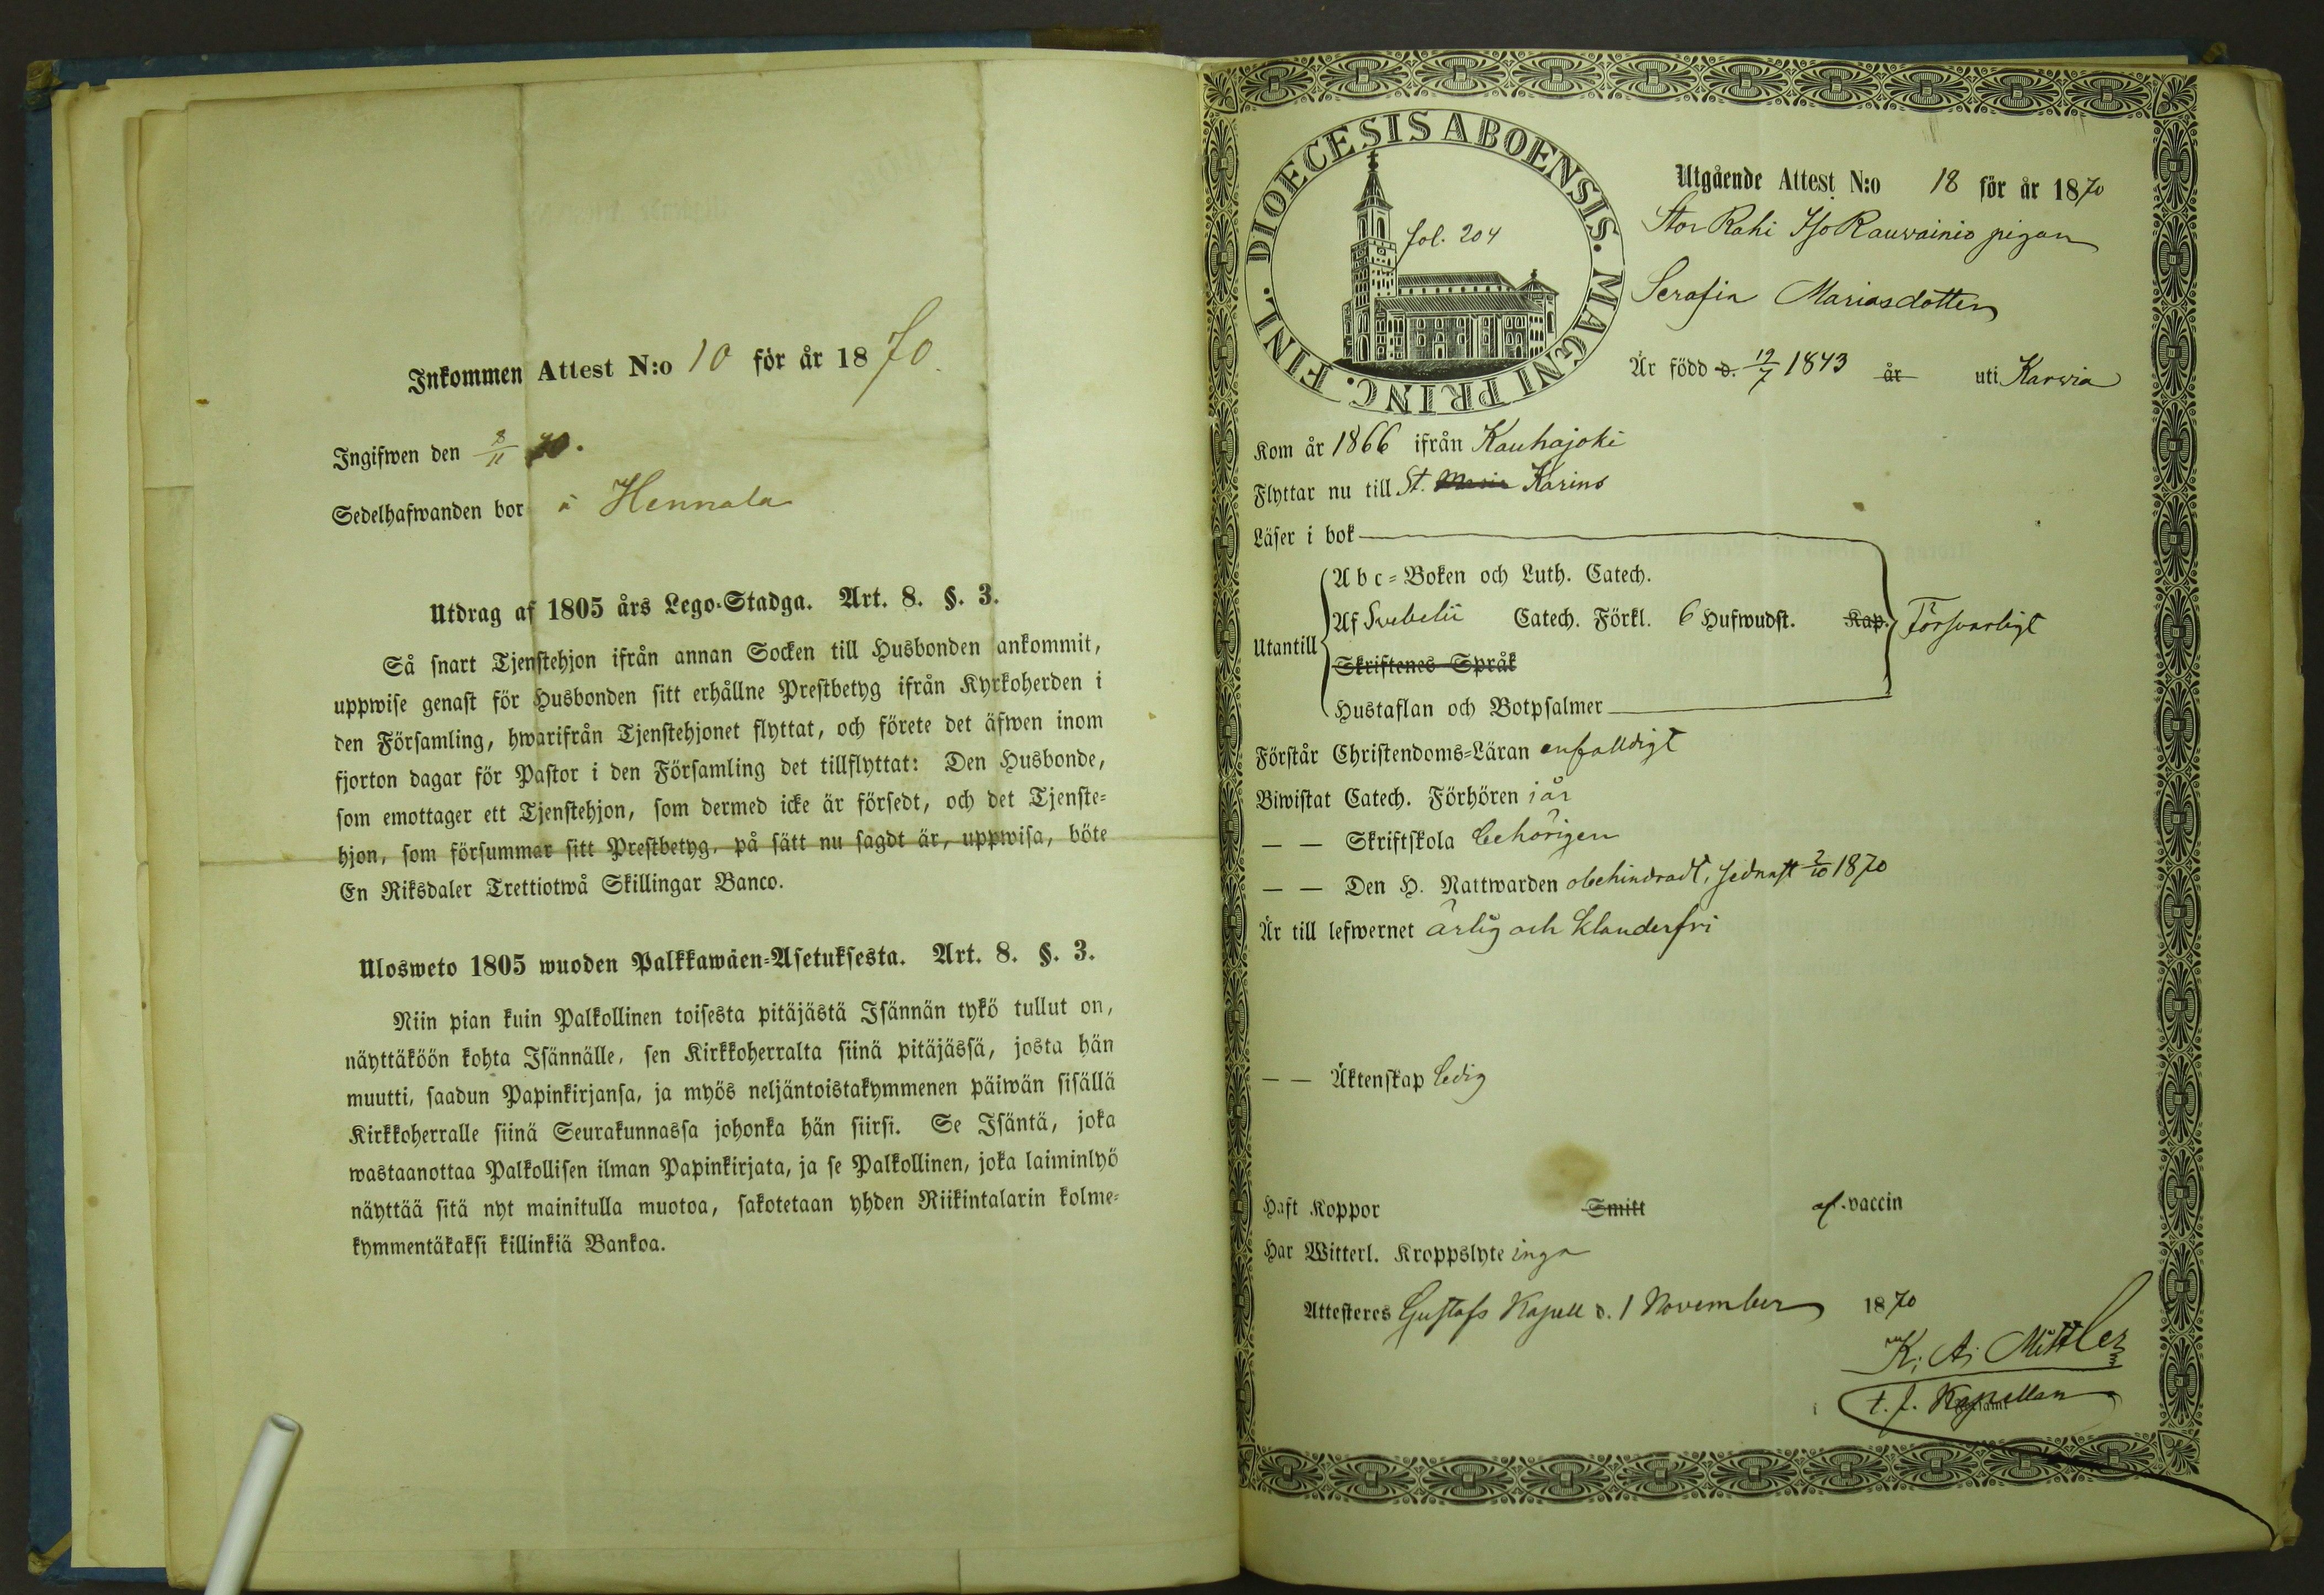 Inkommen Attest N:o 10 för år 1870.
Ingifwen den 8/11 70.
Sedelhafwanden bor å Hennala
Utdrag af 1805 års Lego-Stadga. Art. 8. §. 3.
Så snart Tjenstehjon ifrån annan Socken till Husbonden ankommit,
uppwise genast för Husbonden sitt erhållne Prestbetyg ifrån Kyrkoherden i
den Församling, hwarifrån Tjenstehjonet flyttat, och förete det äfwen inom
fjorton dagar för Pastor i den Församling det tillflyttat: Den Husbonde,
som emottager ett Tjenstehjon, som dermed icke är försedt, och det Tjenste-
hjon, som försummar sitt Prestbetyg, på sätt nu sagdt är, uppwisa, böte
En Riksdaler Trettiotwå Skillingar Banco.
Ulosweto 1805 wuoden Palkkawäen-Asetuksesta. Art. 8. §. 3.
Niin pian kuin Palkollinen toisesta pitäjästä Isännän tykö tullut on,
näyttäköön kohta Isännälle, sen Kirkkoherralta siinä pitäjässä, josta hän
muutti, saadun Papinkirjansa, ja myös neljäntoistakymmenen päiwän sisällä
Kirkkoherralle siinä Seurakunnassa johonka hän siirsi. Se Isäntä, joka
wastaanottaa Palkollisen ilman Papinkirjata, ja se Palkollinen, joka laiminlyö
näyttää sitä nyt mainitulla muotoa, sakotetaan yhden Riikintalarin kolme-
kymmentäkaksi killinkiä Bankoa.
DIOECESIS ABOENSIS. MAGNI PRINC. FINL.
fol. 204
Utgående Attest N:o 18 för år 1870
Stor Rahi Iso Rauwainio pigan
Serafia Mariasdotter
Är född d. 19/7 1843 år uti Karvia
Kom år 1866 ifrån Kauhajoki
Flyttar nu till St. Maria Karins
Läser i bok
Utantill
A b c-Boken och Luth. Catech.
Af Svebelii Catech. Förkl. 6 Hufwudst. Kap.
Försvarligt
Skriftenes Språk
Hustaflan och Botpsalmer
Förstår Christendoms-Läran enfalldigt
Biwistat Catech. Förhören i år
— — Skriftskola behörigen
— — Den H. Nattwarden obehindradt, sednast 2/10 1870
Är till lefwernet ärlig och klanderfri
— — Äktenskap ledig
Haft Koppor Smitt af vaccin
Har Witterl. Kroppslyte inga
Attesteres Gustafs Kapell d. 1 November 1870
K. A. Mittler
i t. f. Kapellan